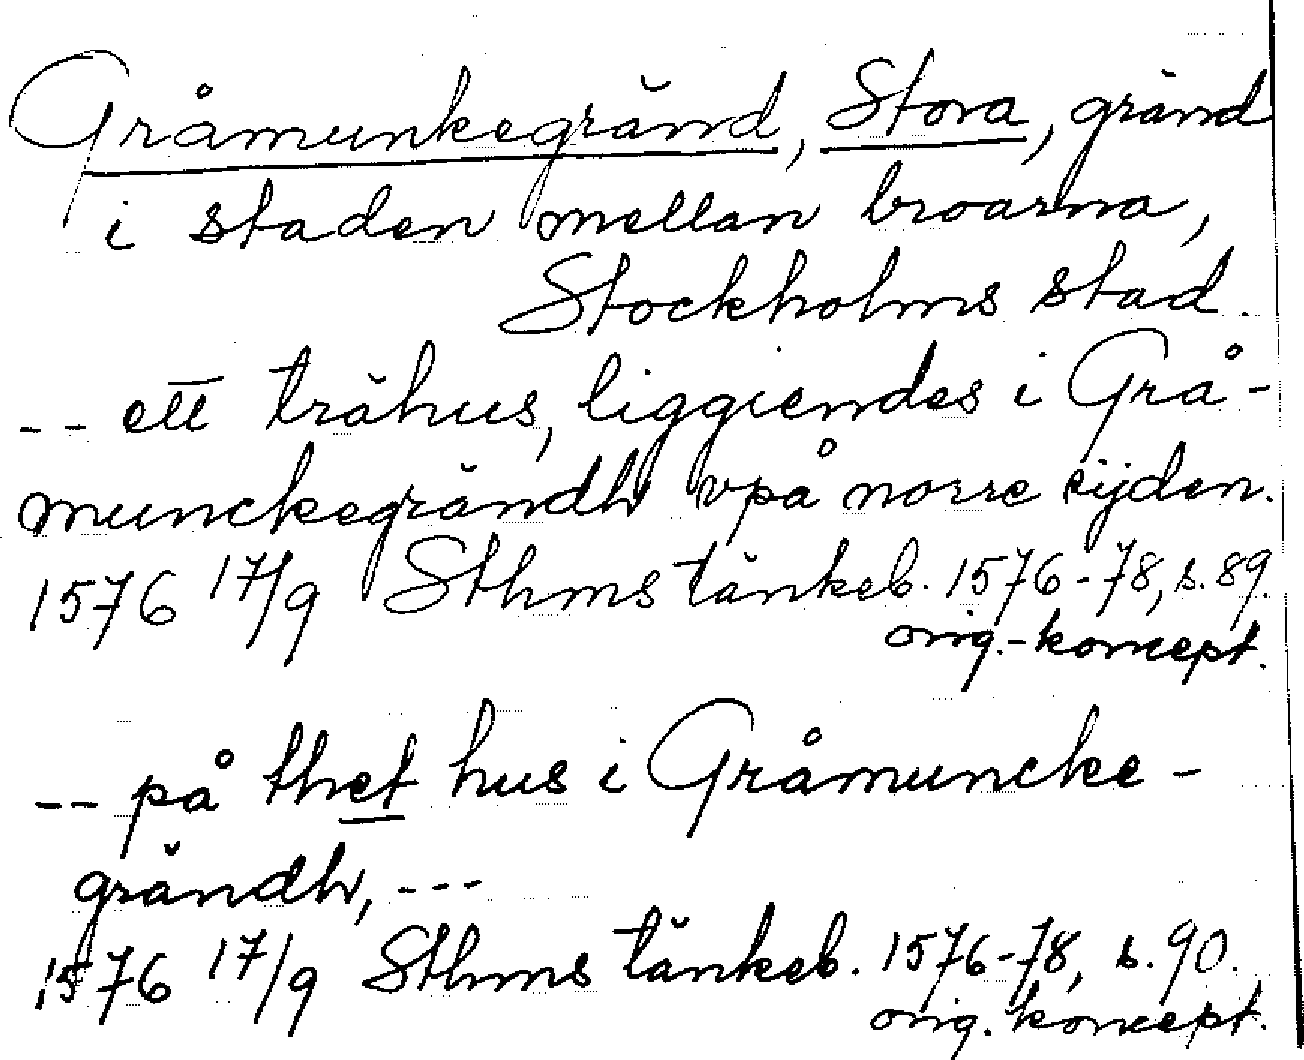 Gråmunkegränd, Stora, gränd
i staden mellan broarna,
Stockholms stad.
-- ett trähus, liggiendes i Grå-
munckegrändh vpå norre sijden.
1576 17/9 Sthms tänkeb. 1576-78, s. 89.
orig.-koncept.
-- på thet hus i Gråmuncke-
grändh, ---
1576 17/9 Sthms tänkeb. 1576-78, s. 90.
orig. koncept.